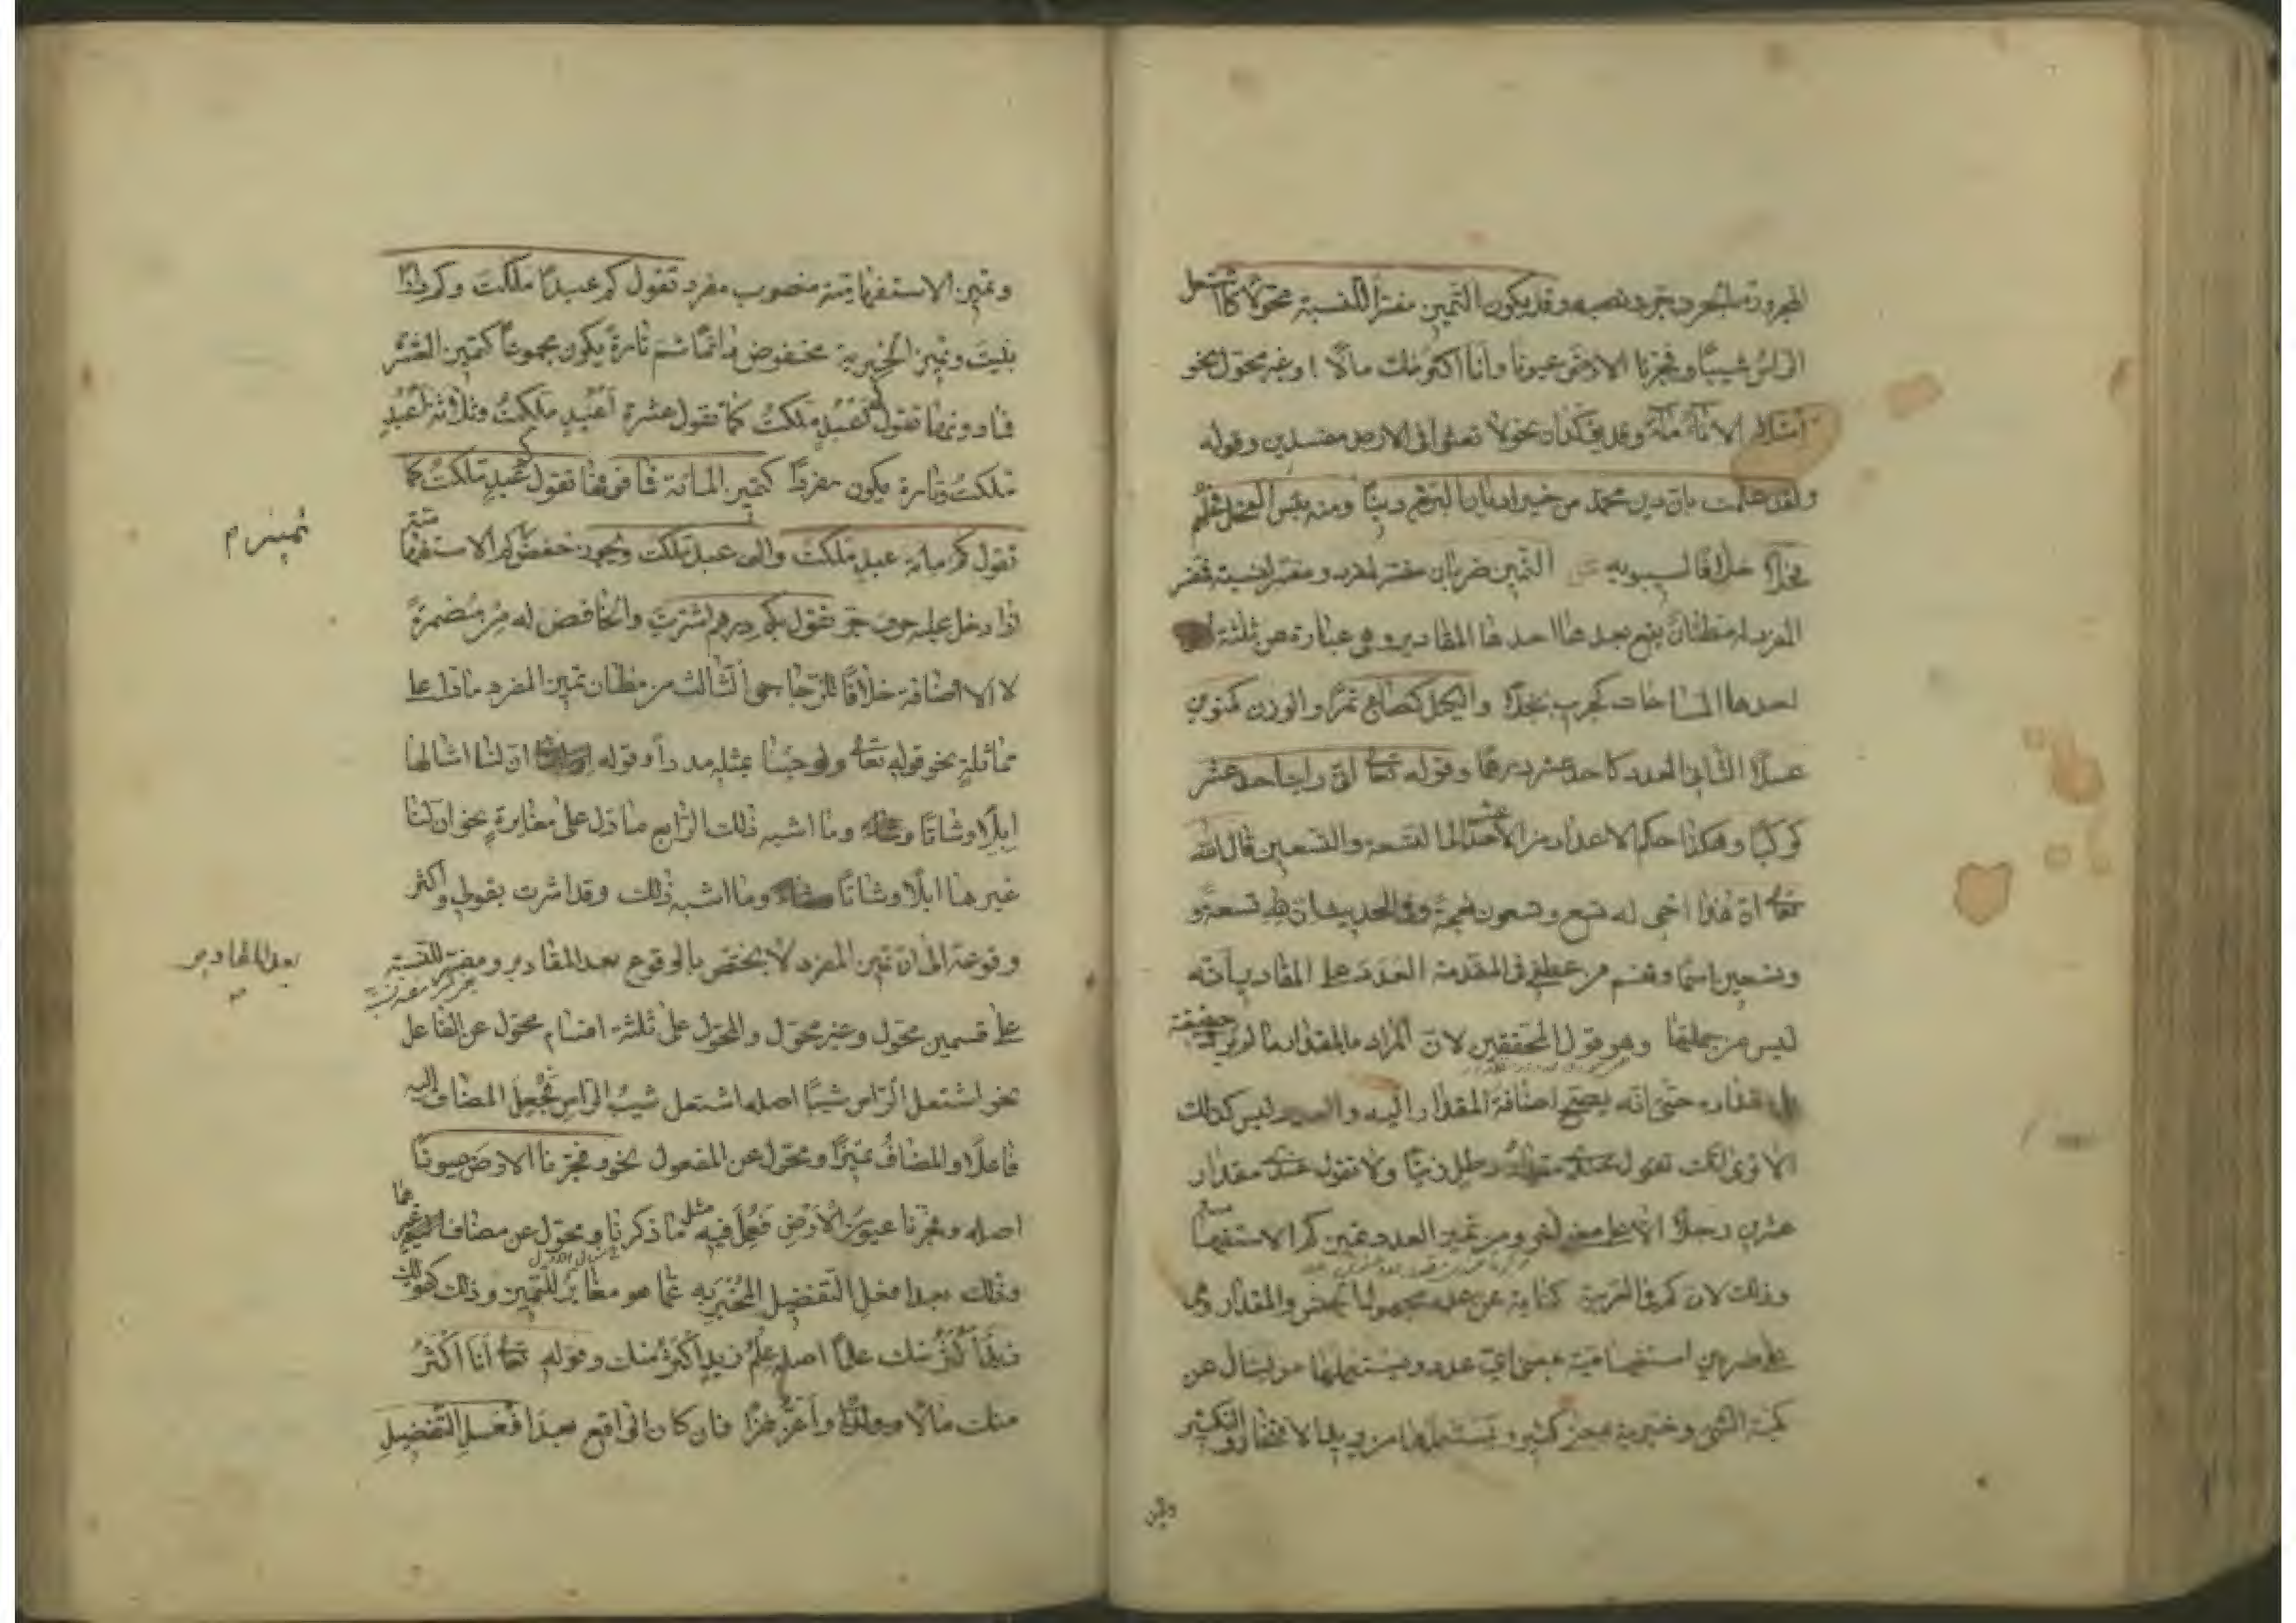 المجرورة بالحرف جر ونصب وقد يكون التمييز مفسرا للنسبة محولا كاشتعل
الراس شيبا وفجرنا الارض عيونا وانا اكثر منك مالا او غير محول نحو
امتلأ الاناء ماء وقد يؤكدان نحو ولا تعثوا فى الارض مفسدين وقوله
ولقد علمت بان دين محمد من خير اديان البرية دينا ومنه بئس الفحل فحلهم
فحلا خلافا لسيبويه التمييز ضربان مفسر لمفرد ومفسر لنسبة فمفسر
المفرد له مظنان يقع بعدها احدها المقادير وهى عبارة عن ثلثة
احدها المساحات كجريب نخلا والكيل كصاع تمرا والوزن كمنوين
عسلا الثانى العدد كاحد عشر درهما وقوله تعالى انى رايت احد عشر
كوكبا وهكذا حكم الاعداد من الاحد عشر الى التسعة والتسعين قال الله
تعالى ان هذا اخى له تسع وتسعون نعجة وفى الحديث ان لله تسعة و
وتسعين اسما وفهم من عطفى فى المقدمة العدد على المقادير انه
ليس من جملتها وهو قول المحققين لان المراد بالمقدار ما لم يرد حقيقته
بل مقداره حتى انه يصح اضافة المقدار اليه والعدد ليس كذلك
الا ترى انك تقول عندى مقدار رطل زيتا ولا تقول عندى مقدار
عشرين رجلا الا على معنى اخر ومن تمييز العدد تمييز كم الاستفهامية
وذلك لان كم فى العربية كناية عن عدد مجهول الجنس والمقدار وهى
على ضربين استفهامية بمعنى اى عدد ويستعملها من يسال عن
كمية الشئ وخبرية بمعنى كثير ويستعملها من يريد الافتخار والتكثير
وتمييز
وتمييز الاستفهامية منصوب مفرد تقول كم عبدا ملكت وكم دارا
بنيت وتمييز الخبرية مخفوض دائما ثم تارة يكون مجموعا كتمييز العشرة
فما دونها تقول كم اعبد ملكت كما تقول عشرة اعبد ملكت وثلاثة اعبد
ملكت وتارة يكون مفردا كتمييز المائة فما فوقها تقول كم عبد ملكت كما
تقول كم مائة عبد ملكت والف عبد ملكت ويجوز خفض كم الاستفهامية
تمييز م
اذا دخل عليه حرف جر تقول بكم درهم اشتريت والخافض له من مضمرة
لا الاضافة خلافا للزجاجى الثالث من مظان تمييز المفرد ما دل على
مماثلة نحو قوله تعالى ولو جئنا بمثله مددا وقوله ان لنا امثالها
ابلا وشاتا وما اشبه ذلك الرابع ما دل على مغايرة نحو ان لنا
غيرها ابلا وشاتا وما اشبه ذلك وقد اشرت بقولى واكثر
وقوعه الى ان تمييز المفرد لا يختص بالوقوع بعد المقادير ومفسر للنسبة
بعد المقادير
على قسمين محول وغير محول والمحول على ثلثة اقسام محول عن الفاعل
نحو اشتعل الراس شيبا اصله اشتعل شيب الراس فجعل المضاف اليه
فاعلا والمضاف تميزا ومحول عن المفعول نحو وفجرنا الارض عيونا
اصله وفجرنا عيون الارض ففعل فيه مثل ما ذكرنا ومحول عن مضاف غيرهما
وذلك بعد افعل التفضيل المخبر به عما هو مغاير للتمييز وذلك كقولك
زيد اكثر منك علما اصله علم زيد اكثر منك وقوله تعالى انا اكثر
منك مالا وولدا واعز نفرا فان كان الواقع بعد افعل التفضيل